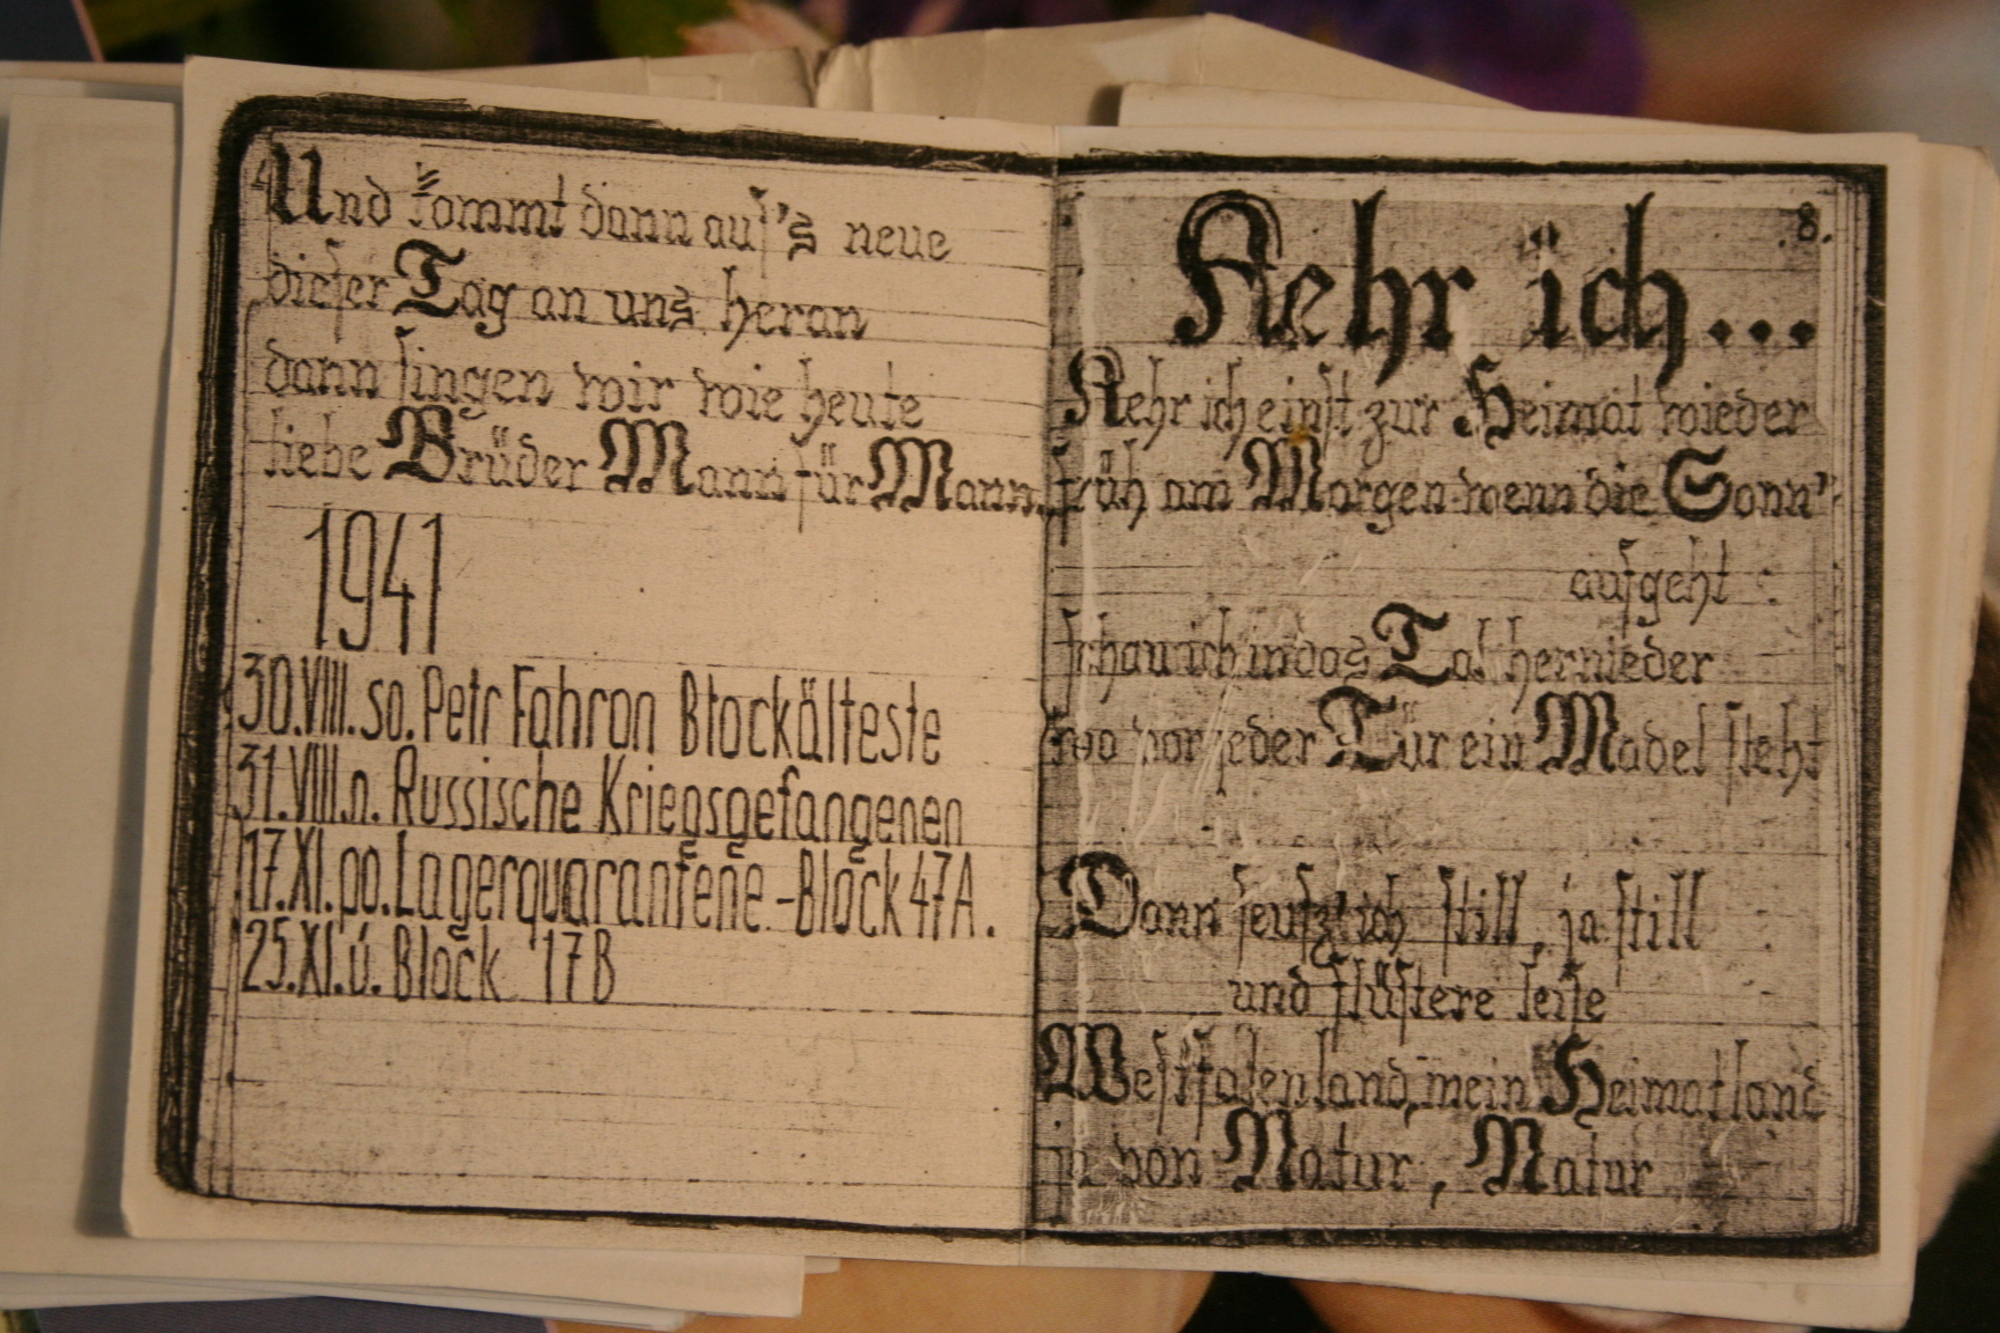 4. Und kommt dann auf's neue
dieser Tag an uns heran
dann singen wir wie heute
liebe Brüder Mann für Mann.
1941
30.VIII.so. Petr Fahron Blockälteste
31.VIII.n. Russische Kriegsgefangenen
17.XI.po. Lagerquarantene.-Block 47A.
25.XI.ú. Block 17B
8.
Kehr ich...
Kehr ich einst zur Heimat wieder
früh am Morgen wenn die Sonn'
aufgeht :
schau ich in das Tal hernieder
wo vor jeder Tür ein Mädel steht
Dann seufz' ich still, ja still
und flüstere leise
Westfalenland, mein Heimatland
von Natur, Natur